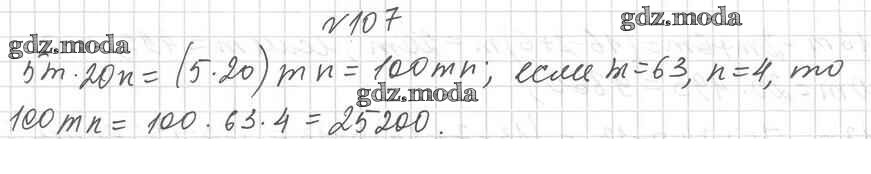 №107
gdz.moda
gdz.moda
5m · 20n = (5 · 20) mn = 100mn; если m = 63, n = 4, то
gdz.moda
100mn = 100 · 63 · 4 = 25200.